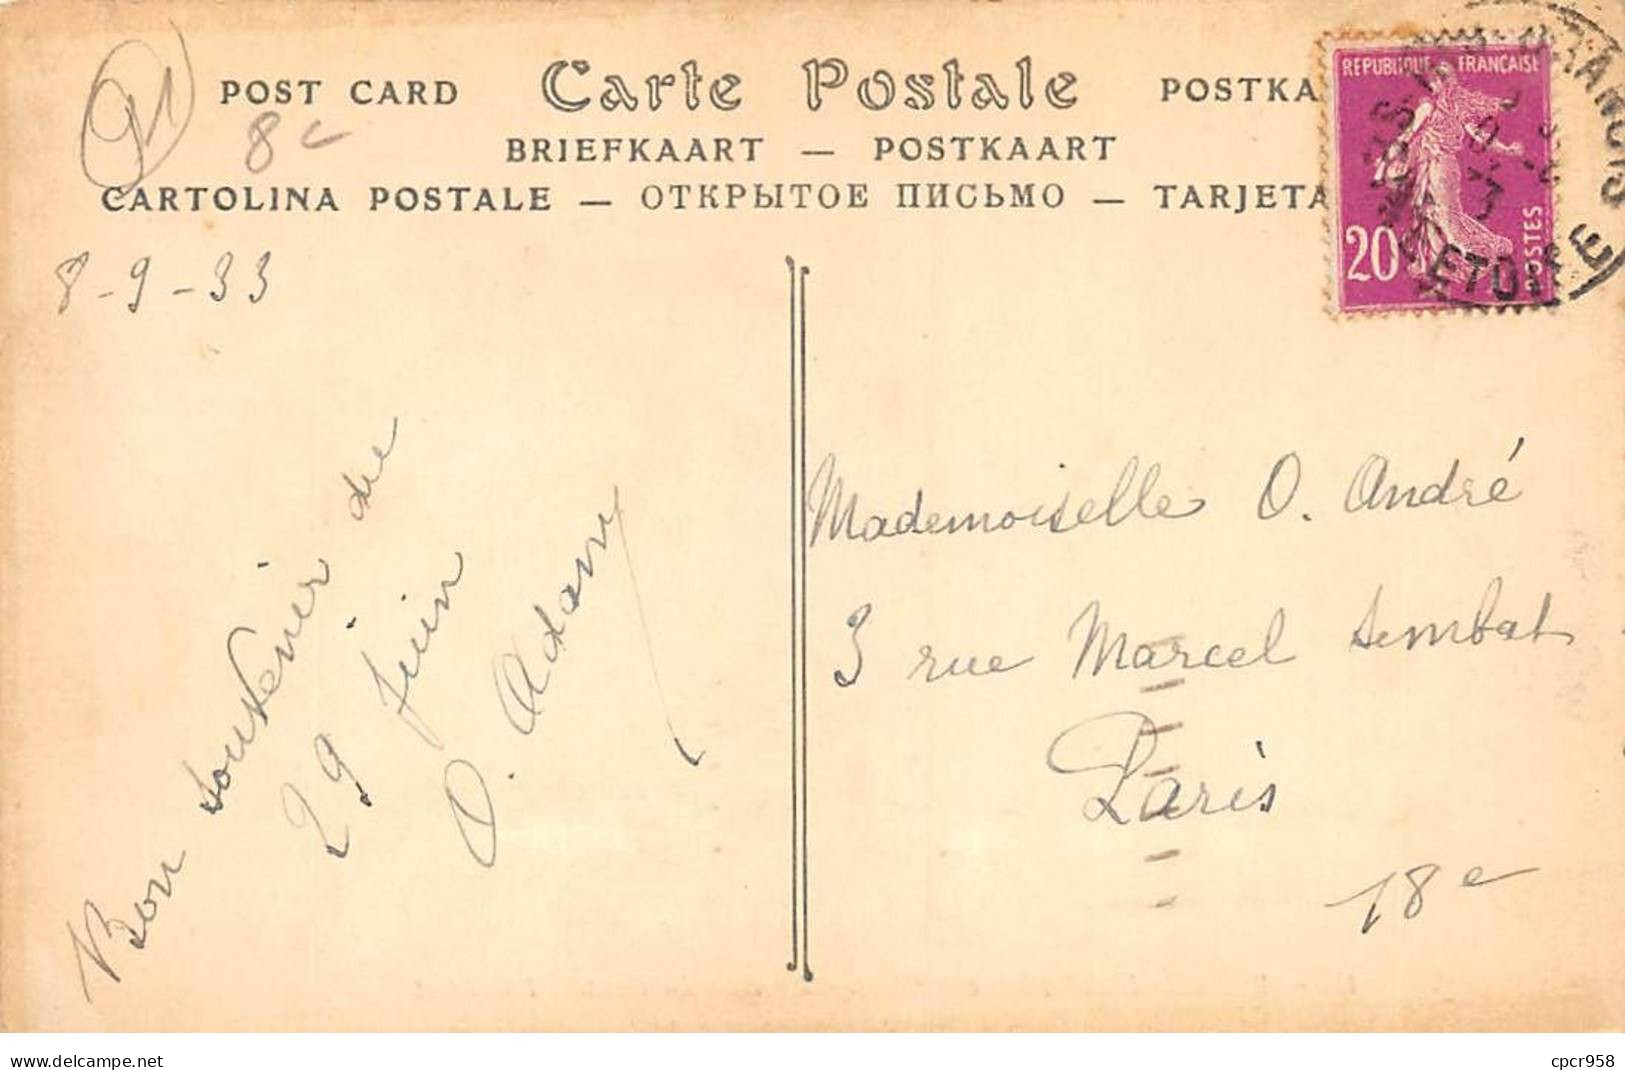 91
POST CARD Carte Postale POSTKA
8 c
BRIEFKAART — POSTKAART
CARTOLINA POSTALE — ОТКРЫТОЕ ПИСЬМО — TARJETA
REPUBLIQUE FRANÇAISE
20
POSTES
ETOILE
8-9-33
Bon souvenir de
29 juin
O. Adam
Mademoiselle O. André
3 rue Marcel Sembat
Paris
18e
delcampe.net
cpcr958